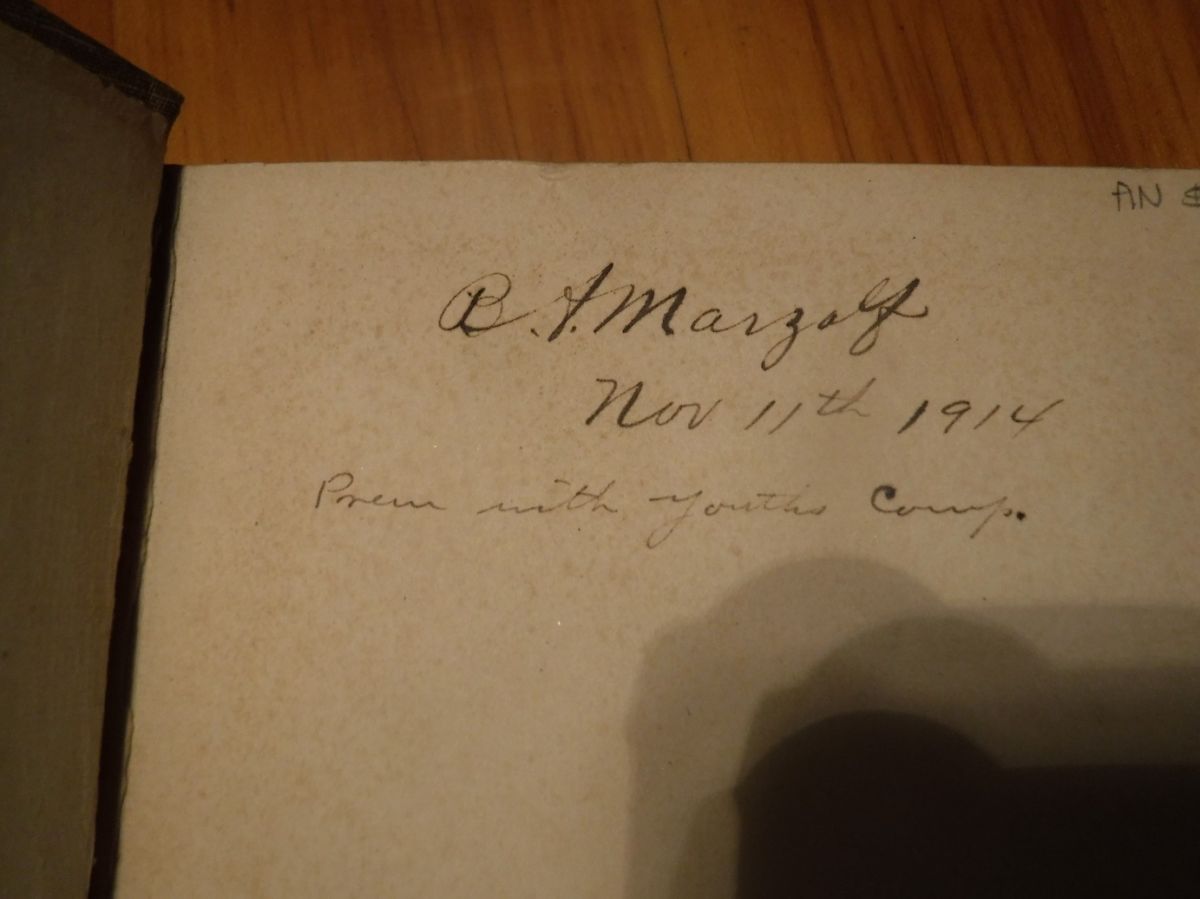 AN
B. A. Marzolf
Nov 11th 1914
Prem with Youths Comp.